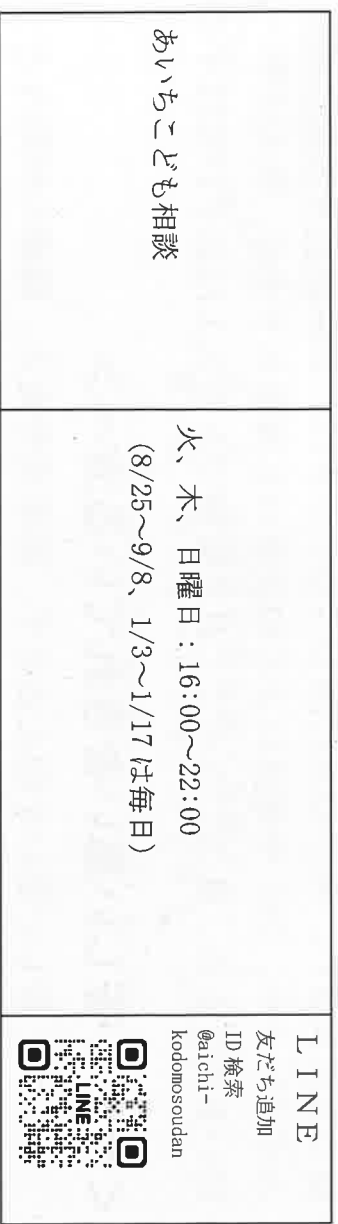 あいちこども相談
火、木、日曜日：16:00～22:00
(8/25～9/8、1/3～1/17は毎日)
ＬＩＮＥ
友だち追加
ID検索
@aichi-
kodomosoudan
LINE